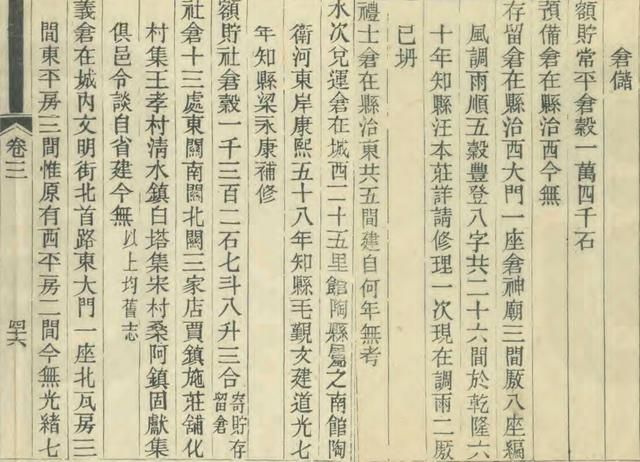 倉儲
額貯常平倉穀一萬四千石
預備倉在縣治西今無
存留倉在縣治西大門一座倉神廟三間厫八座編
風調雨順五穀豐登八字共二十六間於乾隆六
十年知縣汪本莊詳請修理一次現在調雨二厫
已坍
禮士倉在縣治東共五間建自何年無考
水次兌運倉在城西二十五里館陶縣屬之南館陶
衛河東岸康熙五十八年知縣毛覲文建道光七
年知縣梁永康補修
額貯社倉穀一千三百二石七斗八升三合寄貯存留倉
社倉十三處東關南關北關三家店賈鎮施莊舖化
村集王孝村清水鎮白塔集宋村桑阿鎮固獻集
俱邑令談自省建今無以上均舊志
義倉在城內文明街北首路東大門一座北瓦房三
間東平房三間惟原有西平房二間今無光緒七
卷三
四六